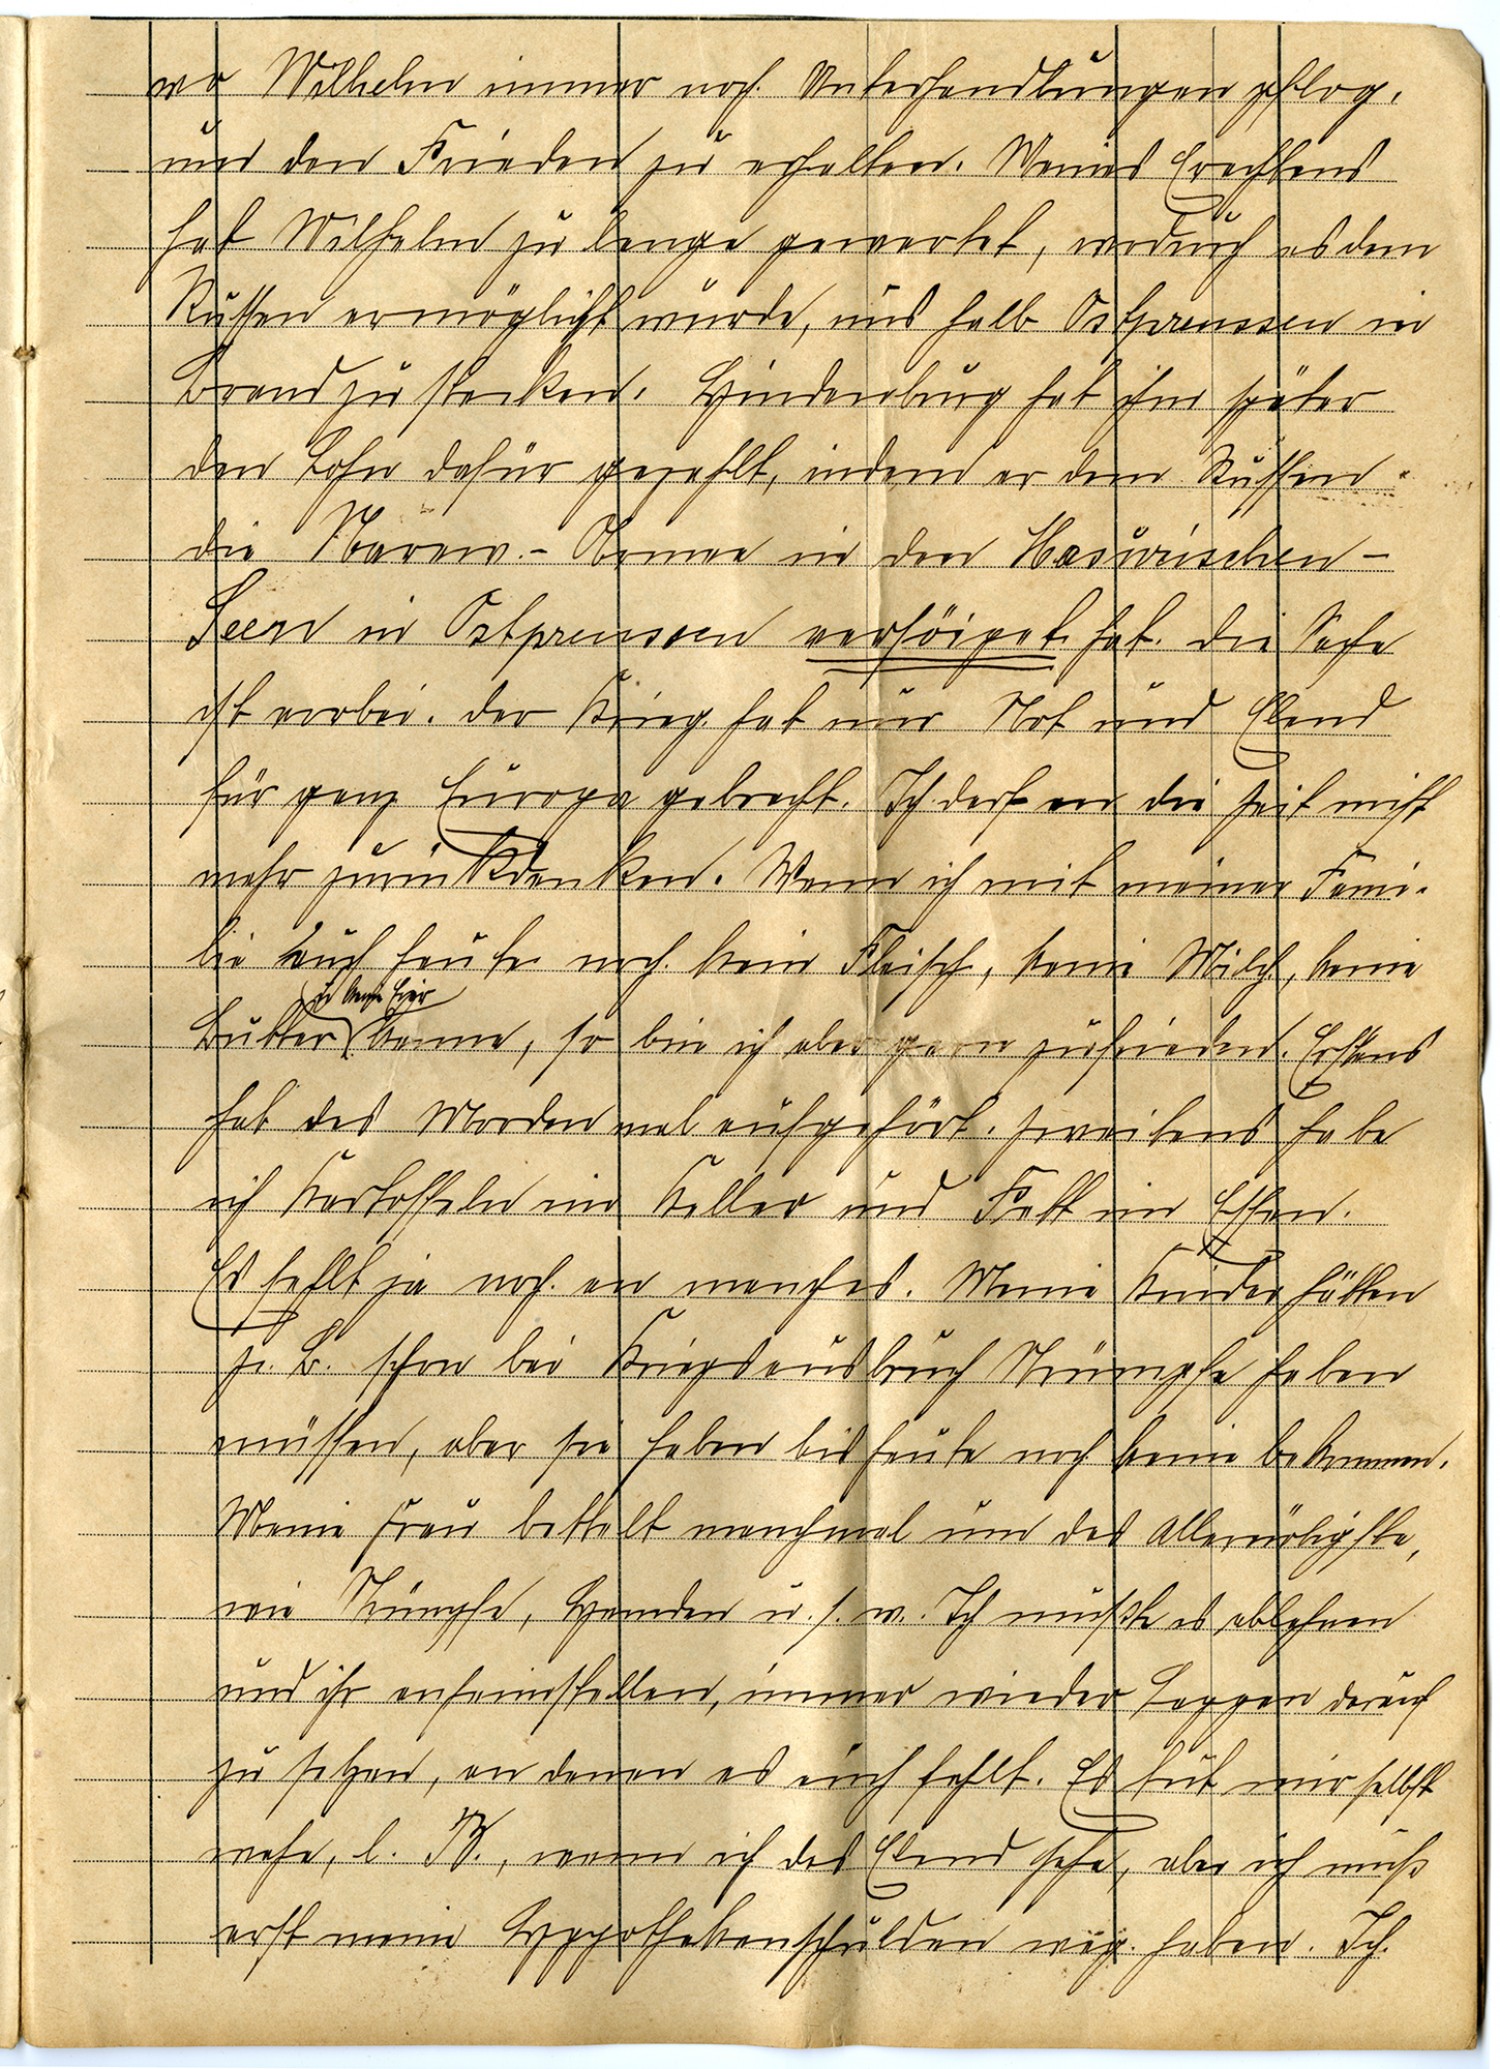 wo Wilhelm immer noch Unterhandlungen pflog,
um den Frieden zu erhalten. Meines Erachtens
hat Wilhelm zu lange gewartet, wodurch es dem
Russen ermöglicht wurde, uns halb Ostpreussen in
Brand zu stecken. Hindenburg hat ihm später
den Lohn dafür gezahlt, indem er dem Russen
die Narew-Armee in den Masurischen-
Seen in Ostpreussen versöipet hat. Die Sache
ist vorbei. Der Krieg hat nur Not und Elend
für ganz Europa gebracht. Ich darf an die Zeit nicht
mehr zurückdenken. Wenn ich mit meiner Fami-
lie auch heute noch kein Fleisch, keine Milch, keine
Butter u keine Eier kenne, so bin ich aber gern zufrieden. Erstens
hat das Morden mal aufgehört. Zweitens habe
ich Kartoffeln im Keller und Fett im Essen.
Es fehlt ja noch an manches. Meine Kinder hätten
z. B. schon bei Kriegsausbruch Strümpfe haben
müssen, aber sie haben bis heute noch keine bekommen.
Meine Frau bettelt manchmal um das Allernötigste,
wie Strümpfe, Hemden u. s. w. Ich mußte es ablehnen
und ihr anheimstellen, immer wieder Lappen darauf
zu setzen, an denen es auch fehlt. Es tut mir selbst
wehe, l. B., wenn ich das Elend sehe, aber ich muß
erst meine Hypothekenschulden weg haben. Ich